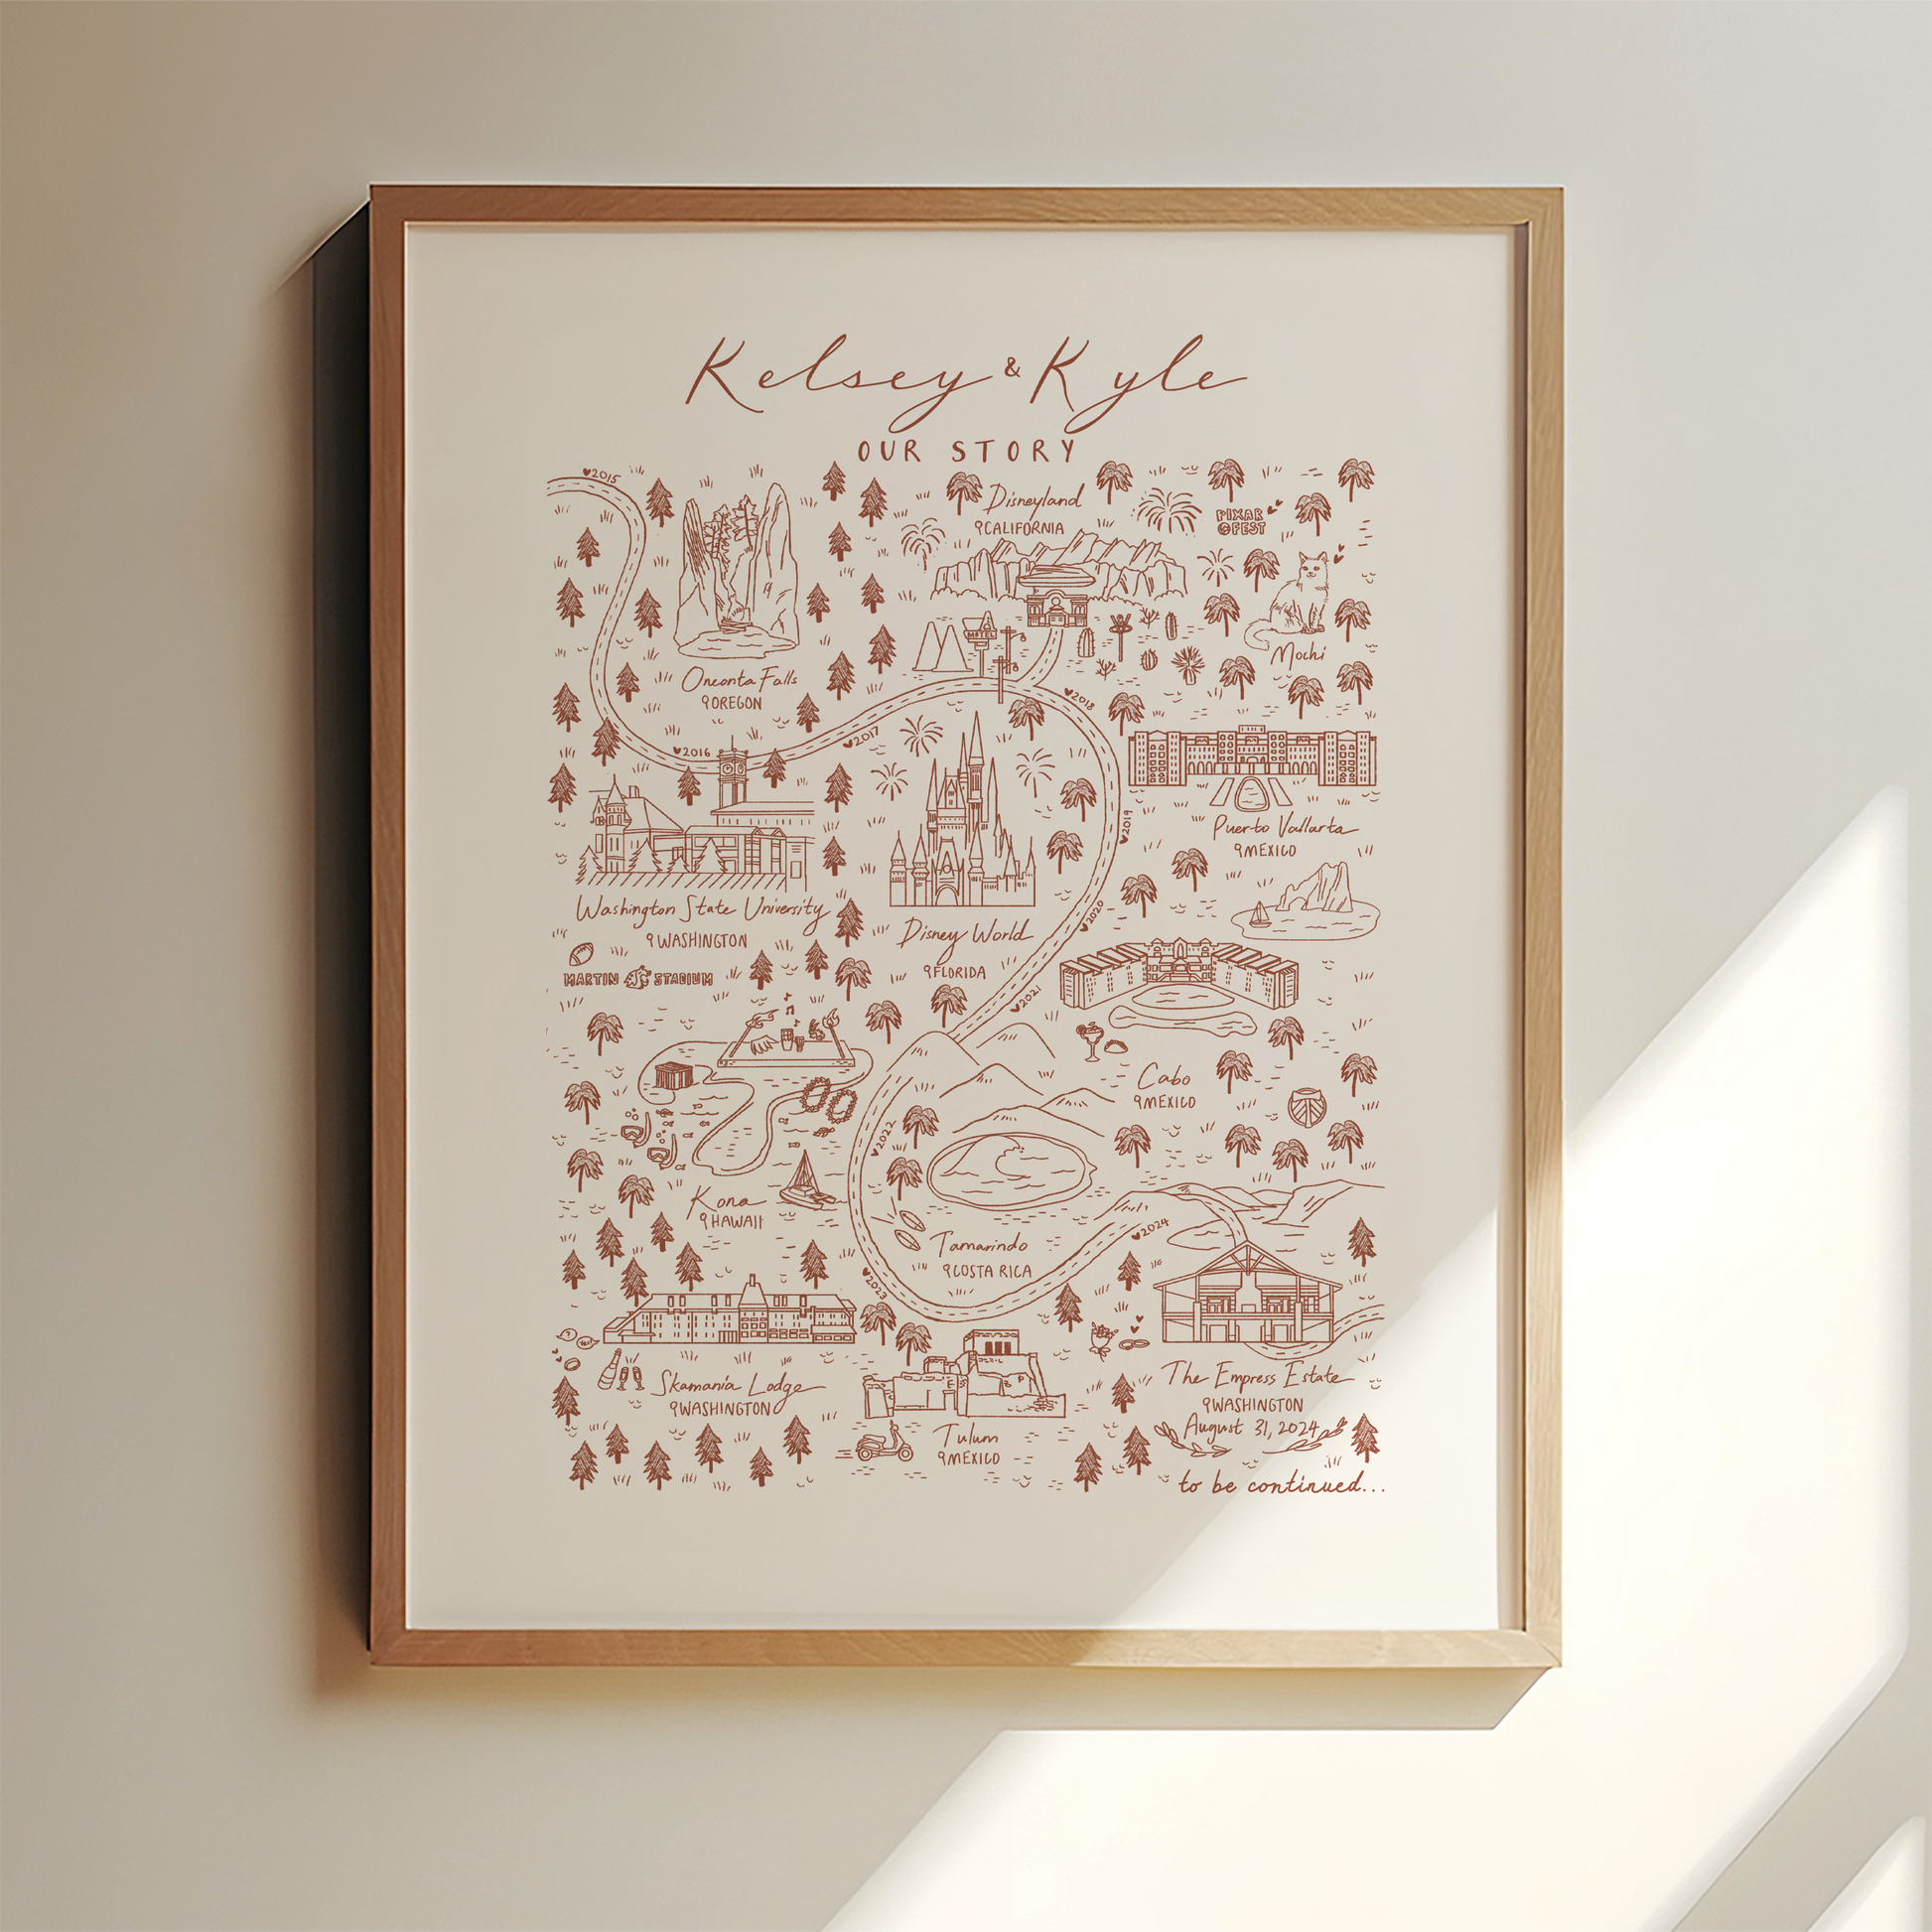 Kelsey & Kyle
OUR STORY
2015
Disneyland
CALIFORNIA
PIXAR
FEST
MOTEL
Mochi
Oneonta Falls
OREGON
2016
2017
2018
Puerto Vallarta
MEXICO
2019
Washington State University
WASHINGTON
MARTIN STADIUM
Disney World
FLORIDA
2020
2021
Cabo
MEXICO
2022
Kona
HAWAII
Tamarindo
COSTA RICA
2023
2024
?
Yes!
Skamania Lodge
WASHINGTON
Tulum
MEXICO
The Empress Estate
WASHINGTON
August 31, 2024
to be continued...